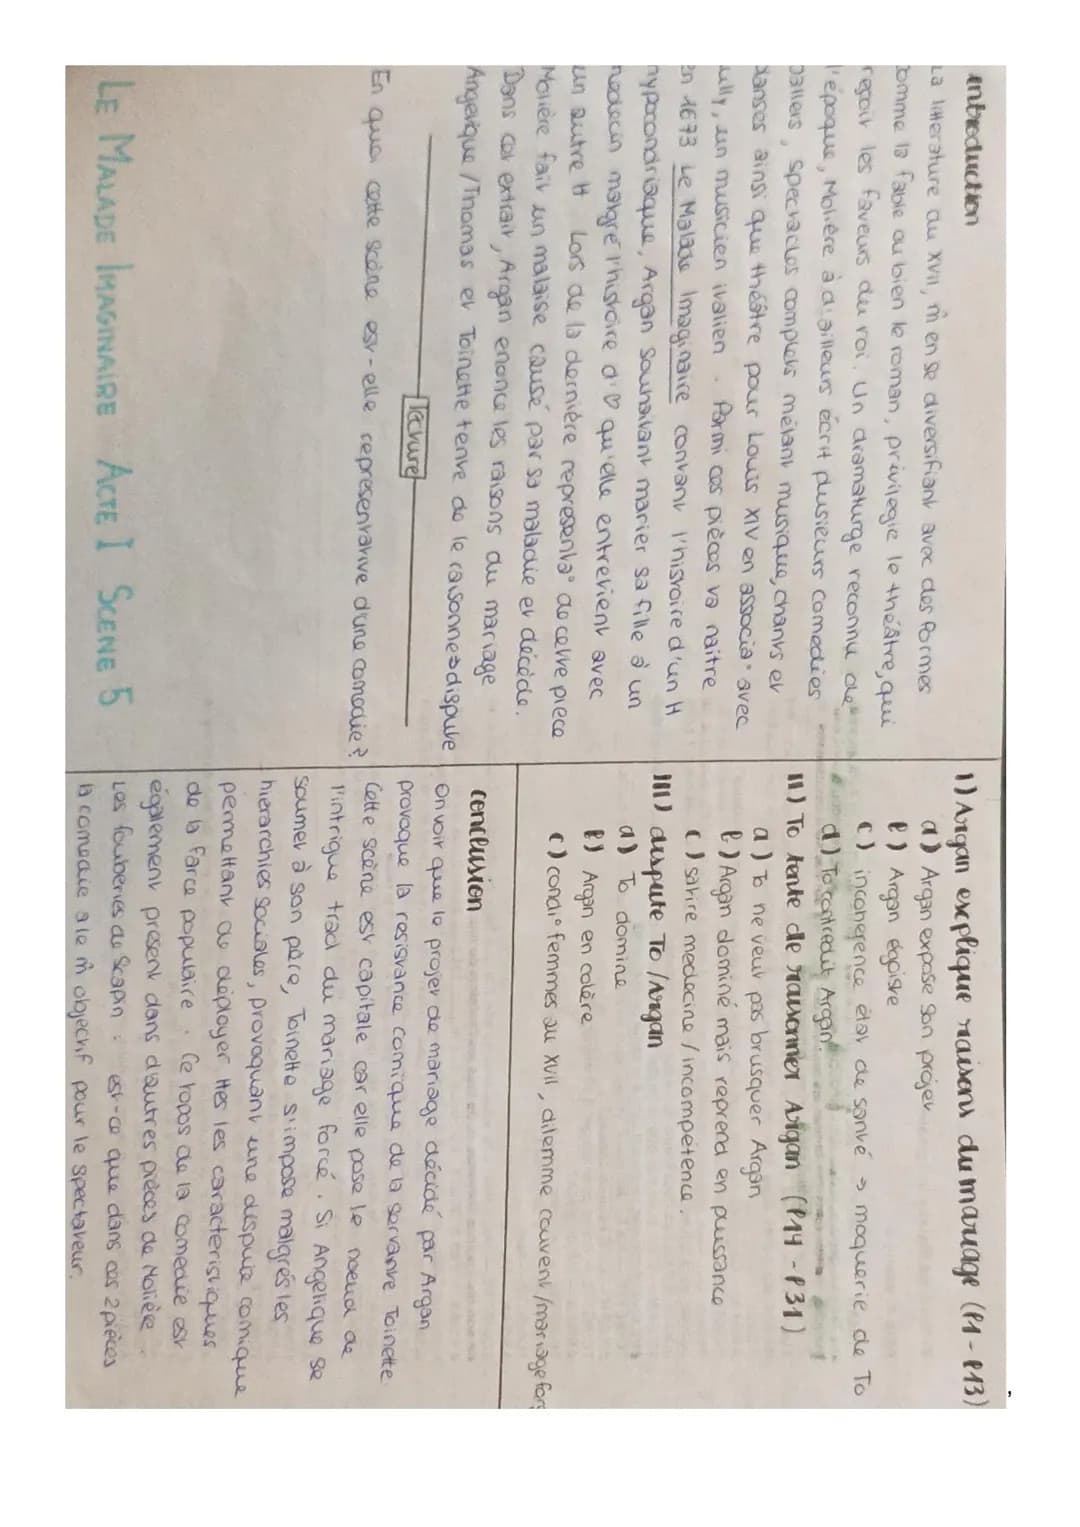 introduction
La litterature du XVII, m̂ en se diversifiant avec des formes
comme la fable ou bien le roman, privilegie le théâtre, qui
reçoit les faveurs du roi. Un dramaturge reconnu de
l'époque, Molière à d'ailleurs écrit plusieurs comedies
ballets, spectacles complets mélant musique, chants et
danses ainsi que théâtre pour Louis XIV en associa° avec
Lully, un musicien italien. Parmi ces pièces va naitre
en 1673 Le Malade Imaginaire contant l'histoire d'un H
hypocondriaque, Argan souhaitant marier sa fille à un
medecin malgré l'histoire d'♡ qu'elle entretient avec
un autre H Lors de la dernière representa° de cette piece
Molière fait un malaise causé par sa maladie et décède.
Dans cet extrait, Argan enonce les raisons du mariage
Angelique / Thomas et Toinette tente de le raisonne⇒dispute
lecture
En quoi cette scène est-elle representative d'une comedie?
LE MALADE IMAGINAIRE ACTE I SCENE 5
I) Argan explique raisons du mariage (l1 - l13)
a) Argan expose son projet
b) Argan égoiste
c) incoherence état de santé → moquerie de To
d) To contredit Argan.
II) To tente de raisonner Argan (l14 - l31)
a) To ne veut pas brusquer Argan
b) Argan dominé mais reprend en puissance
c) satire medecine / incompétence.
III) dispute To / Argan
a) To domine
b) Argan en colère
c) condi° femmes au XVII, dilemme couvent / mariage forc
conclusion
On voit que le projet de mariage décidé par Argan
provoque la resistance comique de la servante Toinette.
Cette scène est capitale car elle pose le noeud de
l'intrigue trad du mariage forcé. Si Angelique se
soumet à son père, Toinette s'impose malgrés les
hierarchies sociales, provoquant une dispute comique
permettant de déployer ttes les caracteristiques
de la farce populaire. Ce topos de la comedie est
également présent dans d'autres pièces de Molière.
Les fouberies de Scapin : est-ce que dans ces 2 pièces
la comedie a le m̂ objectif pour le spectateur.